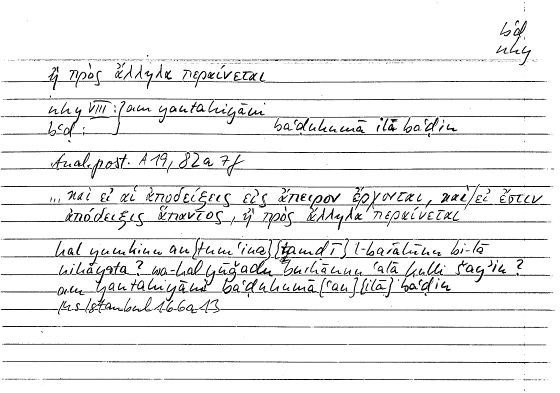 bʿḍ
nhy
ἢ πρὸς ἄλληλα περαίνεται
nhy VIII : } am yantahiyāni
bʿḍ : } baʿḍuhumā ilā baʿḍin
Anal. post. A 19, 82a 7f
... καὶ εἰ αἱ ἀποδείξεις εἰς ἄπειρον ἔρχονται, καὶ εἰ ἔστιν
ἀπόδειξις ἅπαντος, ἢ πρὸς ἄλληλα περαίνεται
hal yumkinu an {tumʿina} {tamḍī} l-barāhīnu bi-lā
nihāyata ? wa-hal yūǧadu burhānun ʿalā kulli šayʾin ?
am yantahiyāni baʿḍuhumā {ʿan} {ilā} baʿḍin
Ms Istanbul 166a13